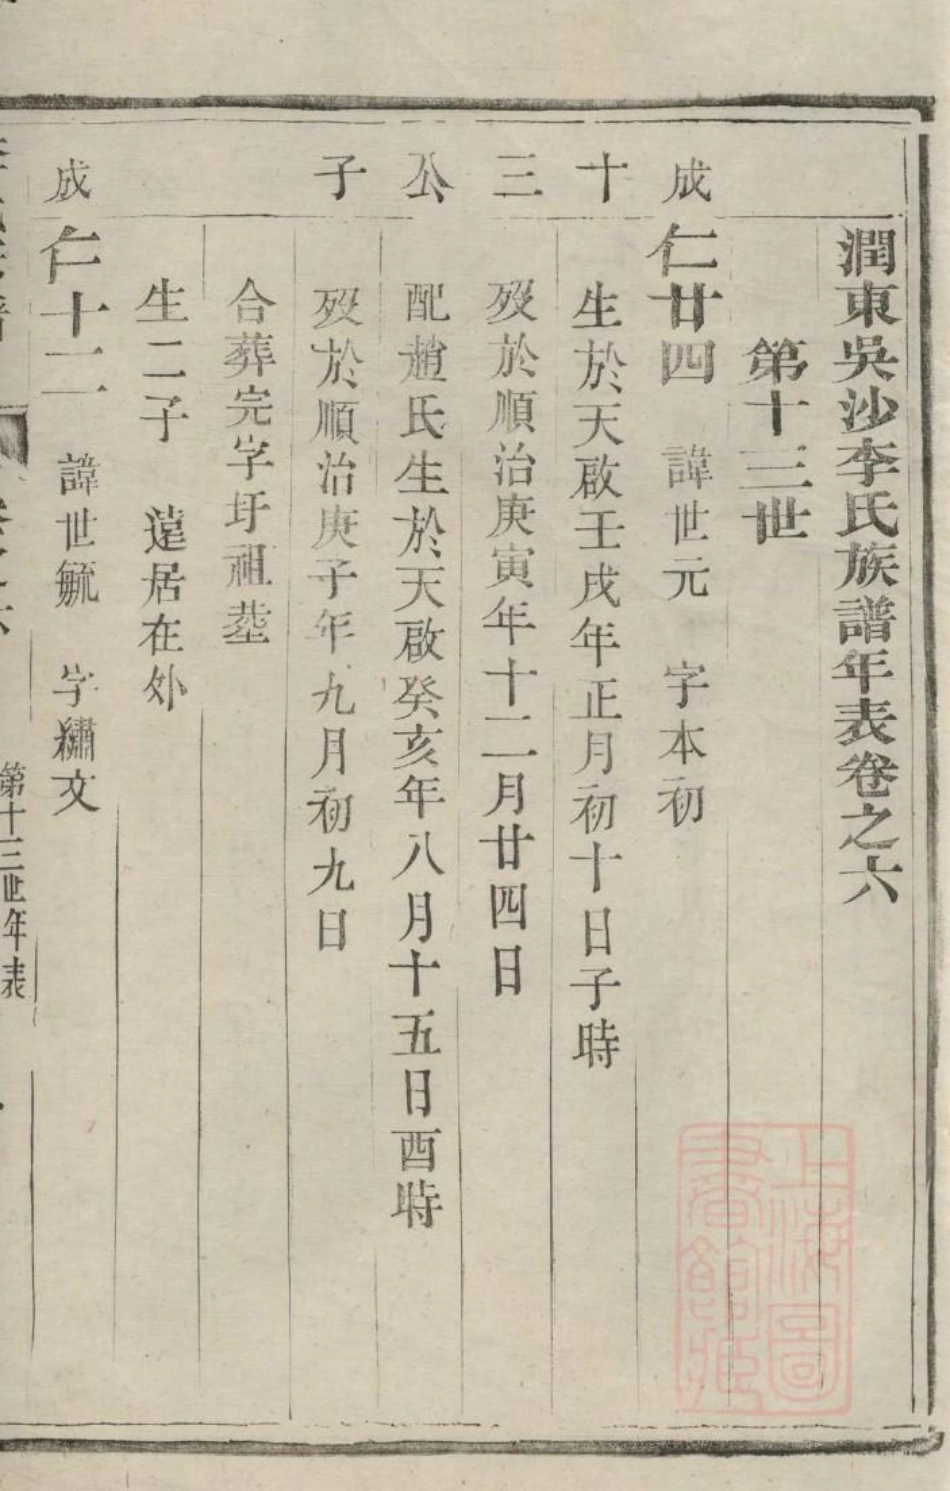 潤東吳沙李氏族譜年表卷之六
第十三世
成 仁廿四 諱世元 字本初
十 生於天啟壬戌年正月初十日子時
三 歿於順治庚寅年十二月廿四日
公 配趙氏生於天啟癸亥年八月十五日酉時
子 歿於順治庚子年九月初九日
合葬完字圩祖塋
生二子 遠居在外
成 仁十二 諱世毓 字繡文
卷之六 第十三世年表
上海圖
書館藏